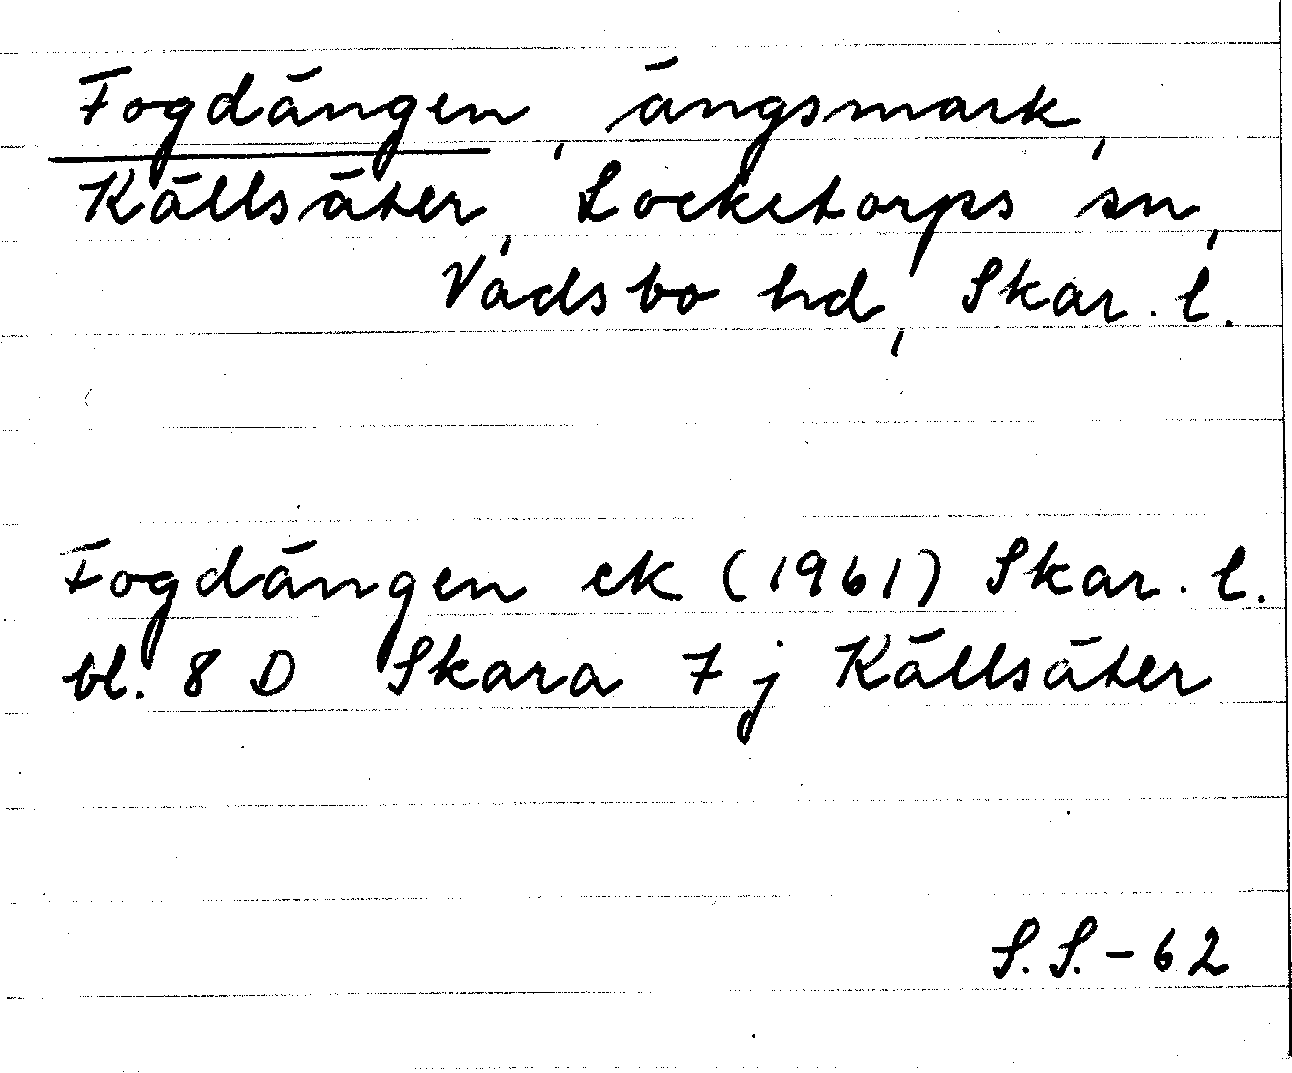 Fogdängen, ängsmark,
Källsäter, Locketorps sn,
Vadsbo hd, Skar. l.
Fogdängen ek (1961) Skar. l.
bl. 8 D Skara 7 j Källsäter
S.S.-62